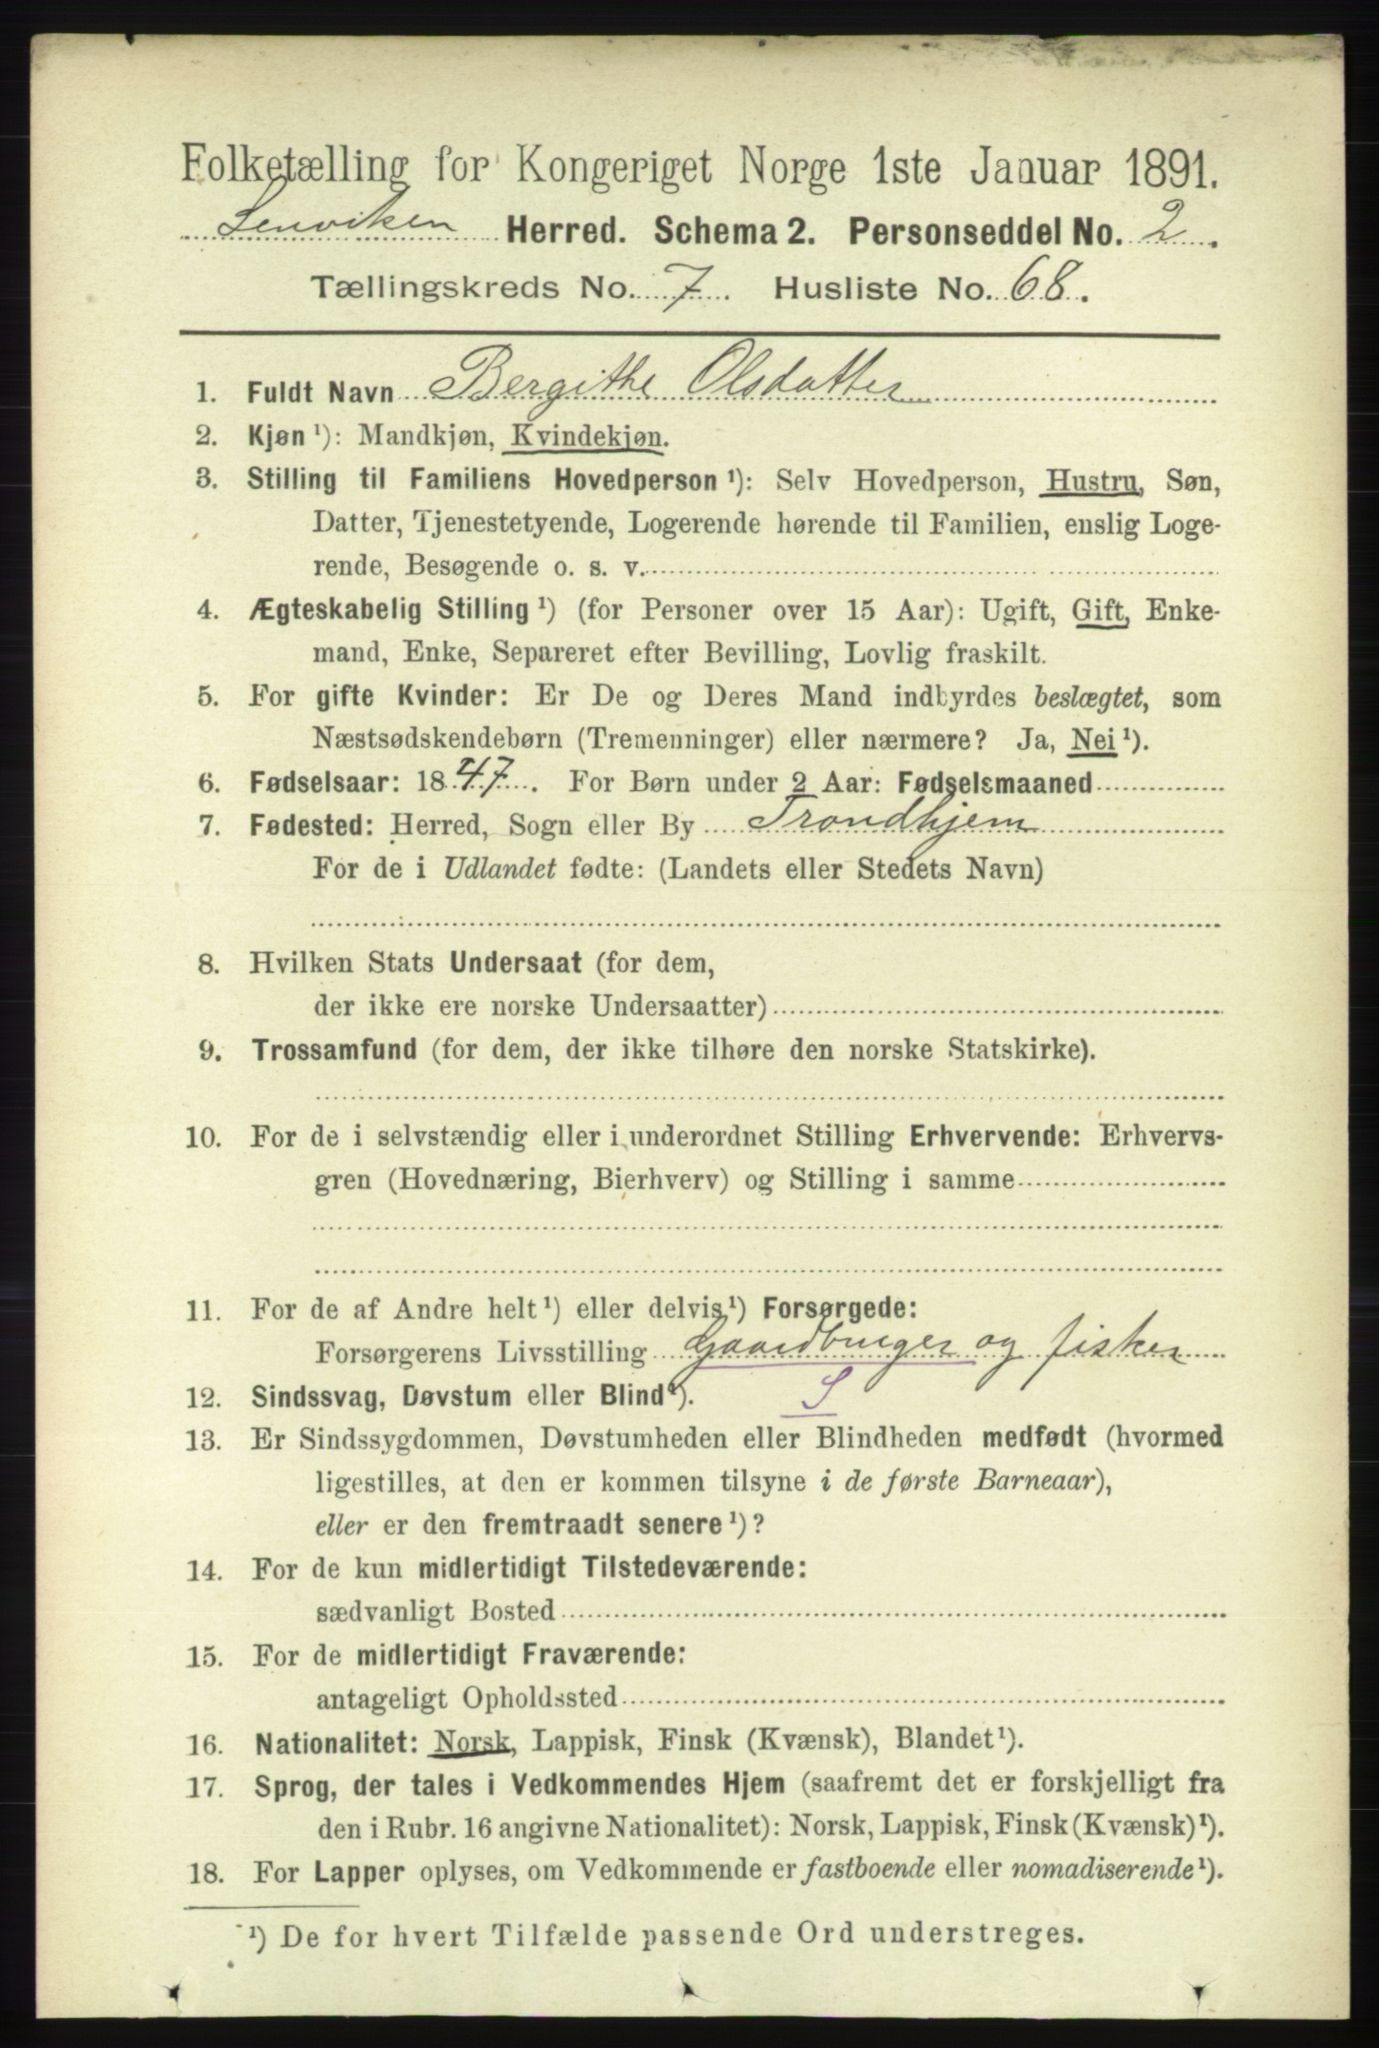 Folketælling for Kongeriget Norge 1ste Januar 1891.
Lenviken Herred. Schema 2. Personseddel No. 2.
Tællingskreds No. 7. Husliste No. 68.
1. Fuldt Navn Bergithe Olsdatter
2. Kjøn ¹): Mandkjøn, Kvindekjøn.
3. Stilling til Familiens Hovedperson ¹): Selv Hovedperson, Hustru, Søn,
Datter, Tjenestetyende, Logerende hørende til Familien, enslig Loge-
rende, Besøgende o. s. v.
4. Ægteskabelig Stilling ¹) (for Personer over 15 Aar): Ugift, Gift, Enke-
mand, Enke, Separeret efter Bevilling, Lovlig fraskilt.
5. For gifte Kvinder: Er De og Deres Mand indbyrdes beslægtet, som
Næstsødskendebørn (Tremenninger) eller nærmere? Ja, Nei ¹).
6. Fødselsaar: 1847. For Børn under 2 Aar: Fødselsmaaned
7. Fødested: Herred, Sogn eller By Trondhjem
For de i Udlandet fødte: (Landets eller Stedets Navn)
8. Hvilken Stats Undersaat (for dem,
der ikke ere norske Undersaatter)
9. Trossamfund (for dem, der ikke tilhøre den norske Statskirke).
10. For de i selvstændig eller i underordnet Stilling Erhvervende: Erhvervs-
gren (Hovednæring, Bierhverv) og Stilling i samme
11. For de af Andre helt ¹) eller delvis ¹) Forsørgede:
Forsørgerens Livsstilling Gaardbruger og fisker
12. Sindssvag, Døvstum eller Blind ¹). S
13. Er Sindssygdommen, Døvstumheden eller Blindheden medfødt (hvormed
ligestilles, at den er kommen tilsyne i de første Barneaar),
eller er den fremtraadt senere ¹)?
14. For de kun midlertidigt Tilstedeværende:
sædvanligt Bosted
15. For de midlertidigt Fraværende:
antageligt Opholdssted
16. Nationalitet: Norsk, Lappisk, Finsk (Kvænsk), Blandet ¹).
17. Sprog, der tales i Vedkommendes Hjem (saafremt det er forskjelligt fra
den i Rubr. 16 angivne Nationalitet): Norsk, Lappisk, Finsk (Kvænsk) ¹).
18. For Lapper oplyses, om Vedkommende er fastboende eller nomadiserende ¹).
¹) De for hvert Tilfælde passende Ord understreges.